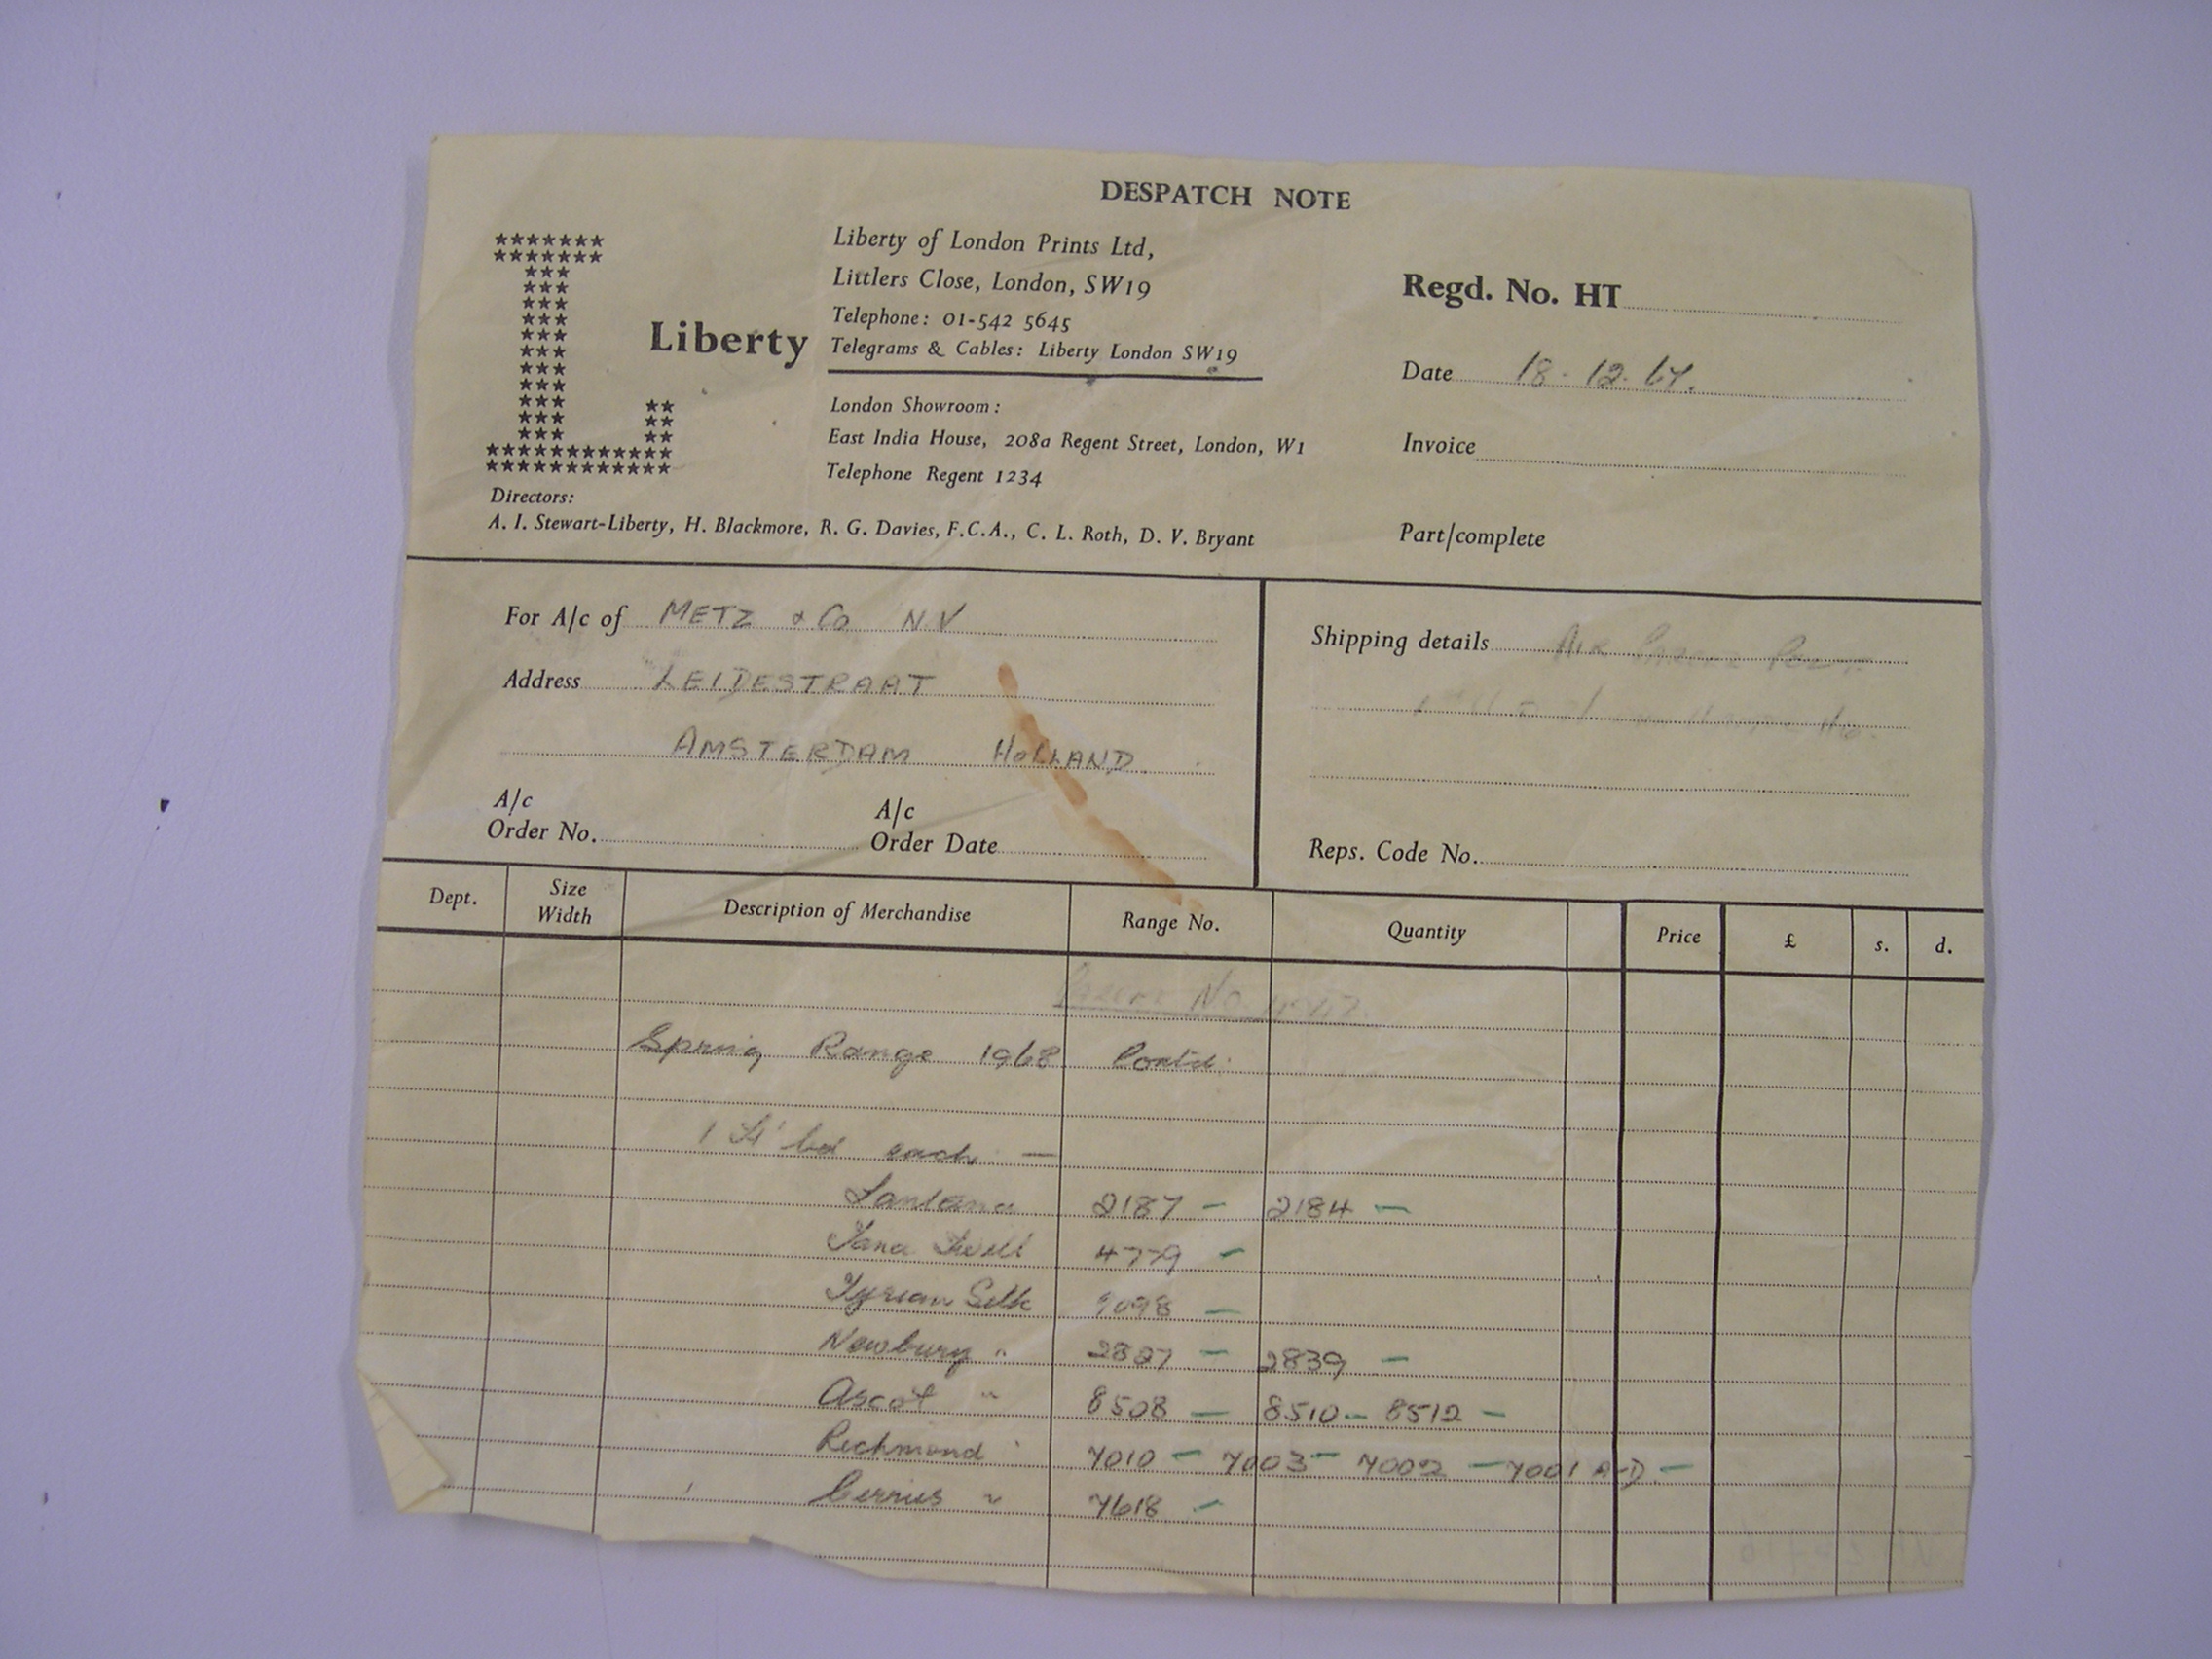 DESPATCH NOTE
Liberty
Liberty of London Prints Ltd,
Littlers Close, London, SW19
Telephone: 01-542 5645
Telegrams & Cables: Liberty London SW19
London Showroom:
East India House, 208a Regent Street, London, W1
Telephone Regent 1234
Directors:
A. I. Stewart-Liberty, H. Blackmore, R. G. Davies, F.C.A., C. L. Roth, D. V. Bryant
Regd. No. HT
Date 18-12-67.
Invoice
Part/complete
For A/c of METZ & Co N.V
Address LEIDESTRAAT
AMSTERDAM HOLLAND
A/c Order No.
A/c Order Date
Shipping details AIR Parcel Post
Reps. Code No.
Dept. Size Width Description of Merchandise Range No. Quantity Price £ s. d.
No.
Spring Range 1968 Contd:
each —
Lantana 2187 – 2184 –
Tana 4779 –
Tyrian Silk 9098 –
Newbury " 2827 – 2839 –
Ascot " 8508 – 8510 – 8512 –
Richmond " 7010 – 7003 – 7002 – 7001 A-D –
" 7618 –